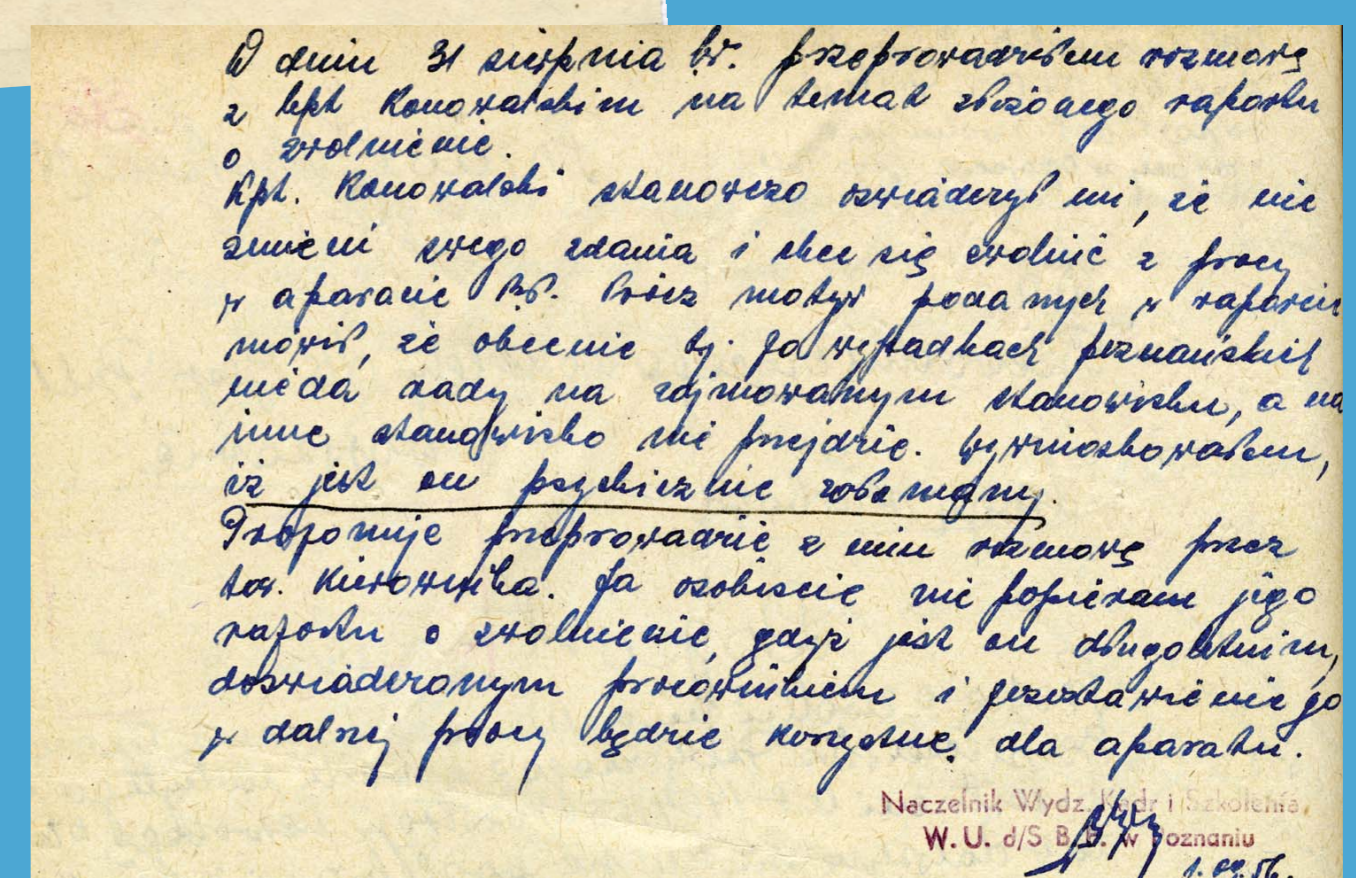 W dniu 31 sierpnia br. przeprowadziłem rozmowę
z kpt Konowalskim na temat złożonego raportu
o zwolnienie.
Kpt. Konowalski stanowczo oświadczył mi, że nie
zmieni swego zdania i chce się zwolnić z pracy
w aparacie BP. Prócz motyw podanych w raporcie
mówił, że obecnie tj. po wypadkach poznańskich
nie da rady na zajmowanym stanowisku, a na
inne stanowisko nie przejdzie. Wywnioskowałem,
iż jest on psychicznie załamany.
Proponuje przeprowadzić z nim rozmowę przez
tow. Kierownika. Ja osobiście nie popieram jego
raportu o zwolnienie, gdyż jest on długoletnim,
doświadczonym pracownikiem i pozostawienie go
w dalszej pracy będzie korzystne dla aparatu.
Naczelnik Wydz. Kadr i Szkolenia
W. U. d/S B. P. w Poznaniu